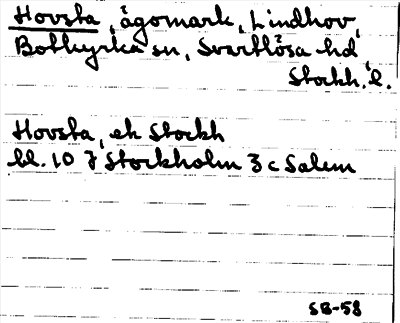 Hovsta, ägomark, Lindhov,
Botkyrka sn, Svartlösa hd,
Stockh. l.
Hovsta, ek Stockh
bl. 10 J Stockholm 3 c Salem
SB-58